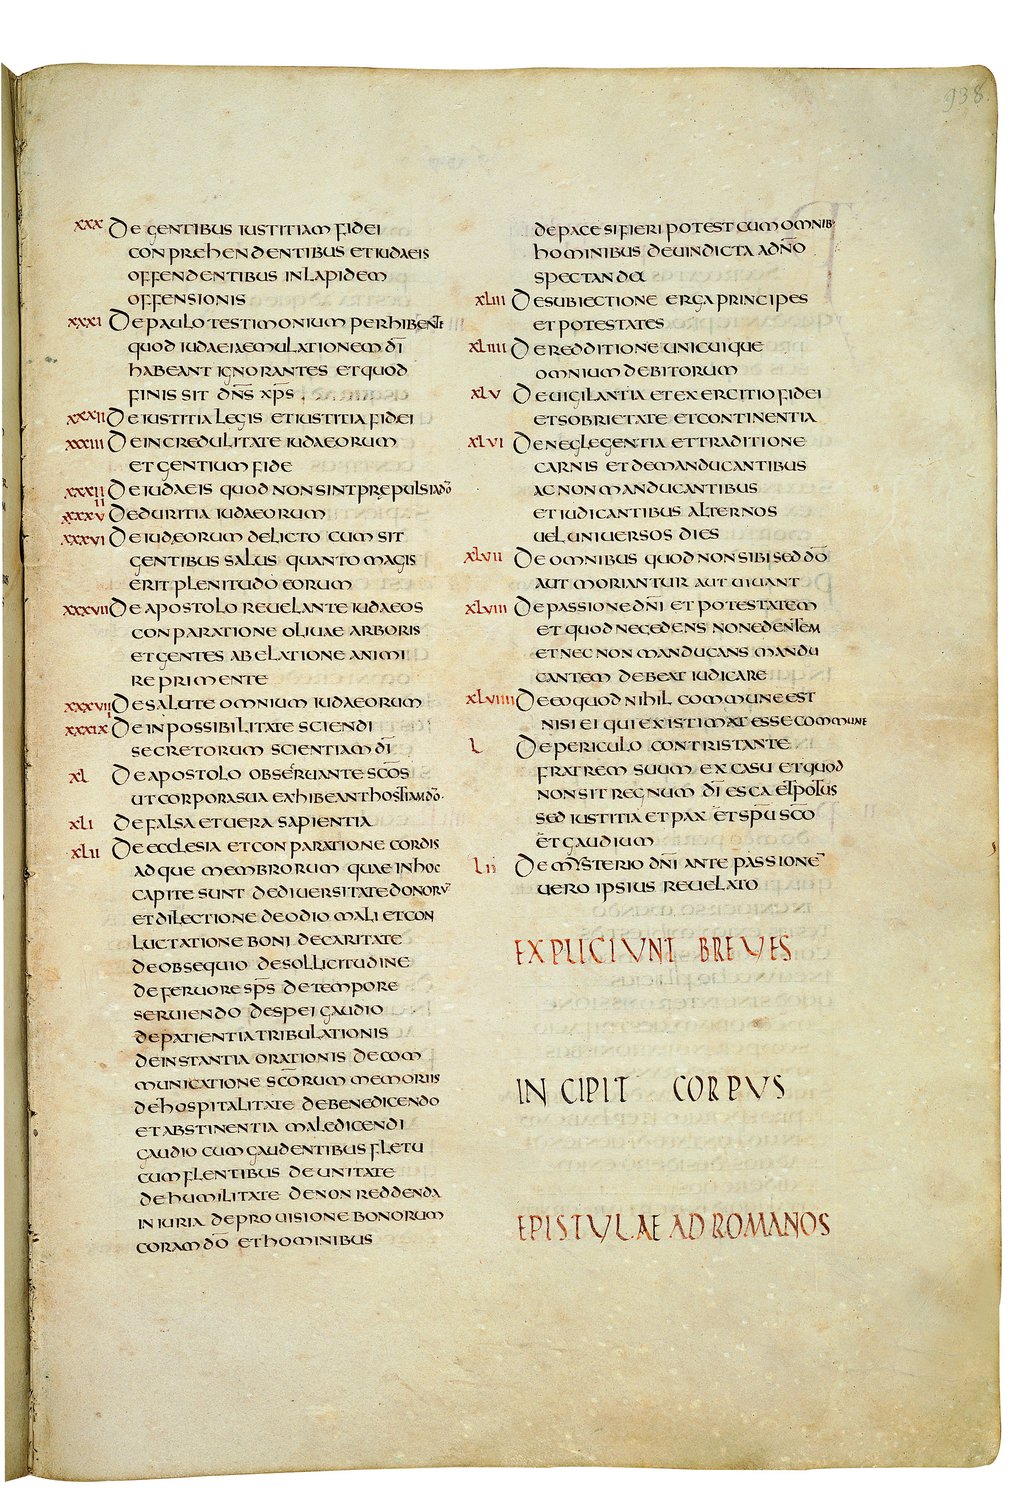 938.
XXX De gentibus iustitiam fidei
conprehendentibus et iudaeis
offendentibus in lapidem
offensionis
XXXI De paulo testimonium perhibente
quod iudaei aemulationem dī
habeant ignorantes et quod
finis sit dn̄s xp̄s .
XXXII De iustitia legis et iustitia fidei
XXXIII De incredulitate iudaeorum
et gentium fide
XXXIIII De iudaeis quod non sint prepulsi a dō
XXXV De duritia iudaeorum
XXXVI De iudęorum delicto cum sit
gentibus salus quanto magis
erit plenitudo eorum
XXXVII De apostolo reuelante iudaeos
conparatione oliuae arboris
et gentes ab elatione animi
reprimente
XXXVIII De salute omnium iudaeorum
XXXIX De inpossibilitate sciendi
secretorum scientiam dī
XL De apostolo obseruante scōs
ut corpora sua exhibeant hostiam dō.
XLI De falsa et uera sapientia
XLII De ecclesia et conparatione cordis
adque membrorum quae in hoc
capite sunt de diuersitate donorū
et dilectione de odio mali et con
luctatione boni de caritate
de obsequio de sollicitudine
de feruore sp̄s de tempore
seruiendo de spei gaudio
de patientia tribulationis
de instantia orationis de com
municatione scōrum memoriis
de hospitalitate de benedicendo
et abstinentia maledicendi
gaudio cum gaudentibus fletu
cum flentibus de unitate
de humilitate de non reddenda
iniuria de prouisione bonorum
coram dō et hominibus
de pace si fieri potest cum omnib·
hominibus de uindicta ad dn̄o
spectanda
XLIII De subiectione erga principes
et potestates
XLIIII De redditione unicuique
omnium debitorum
XLV De uigilantia et exercitio fidei
et sobrietate et continentia
XLVI De neglegentia et traditione
carnis et de manducantibus
ac non manducantibus
et iudicantibus alternos
uel uniuersos dies
XLVII De omnibus quod non sibi sed dō
aut moriantur aut uiuant
XLVIII De passione dn̄i et potestatem
et quod nec edens non edentem
et nec non manducans mandu
cantem debeat iudicare
XLVIIII De eo quod nihil commune est
nisi ei qui existimat esse commune
L De periculo contristante
fratrem suum ex casu et quod
non sit regnum dī esca et potus
sed iustitia et pax et spū scō
et gaudium
LI De mysterio dn̄i ante passionē
uero ipsius reuelato
EXPLICIVNT BREVES
INCIPIT CORPVS
EPISTVLAE AD ROMANOS